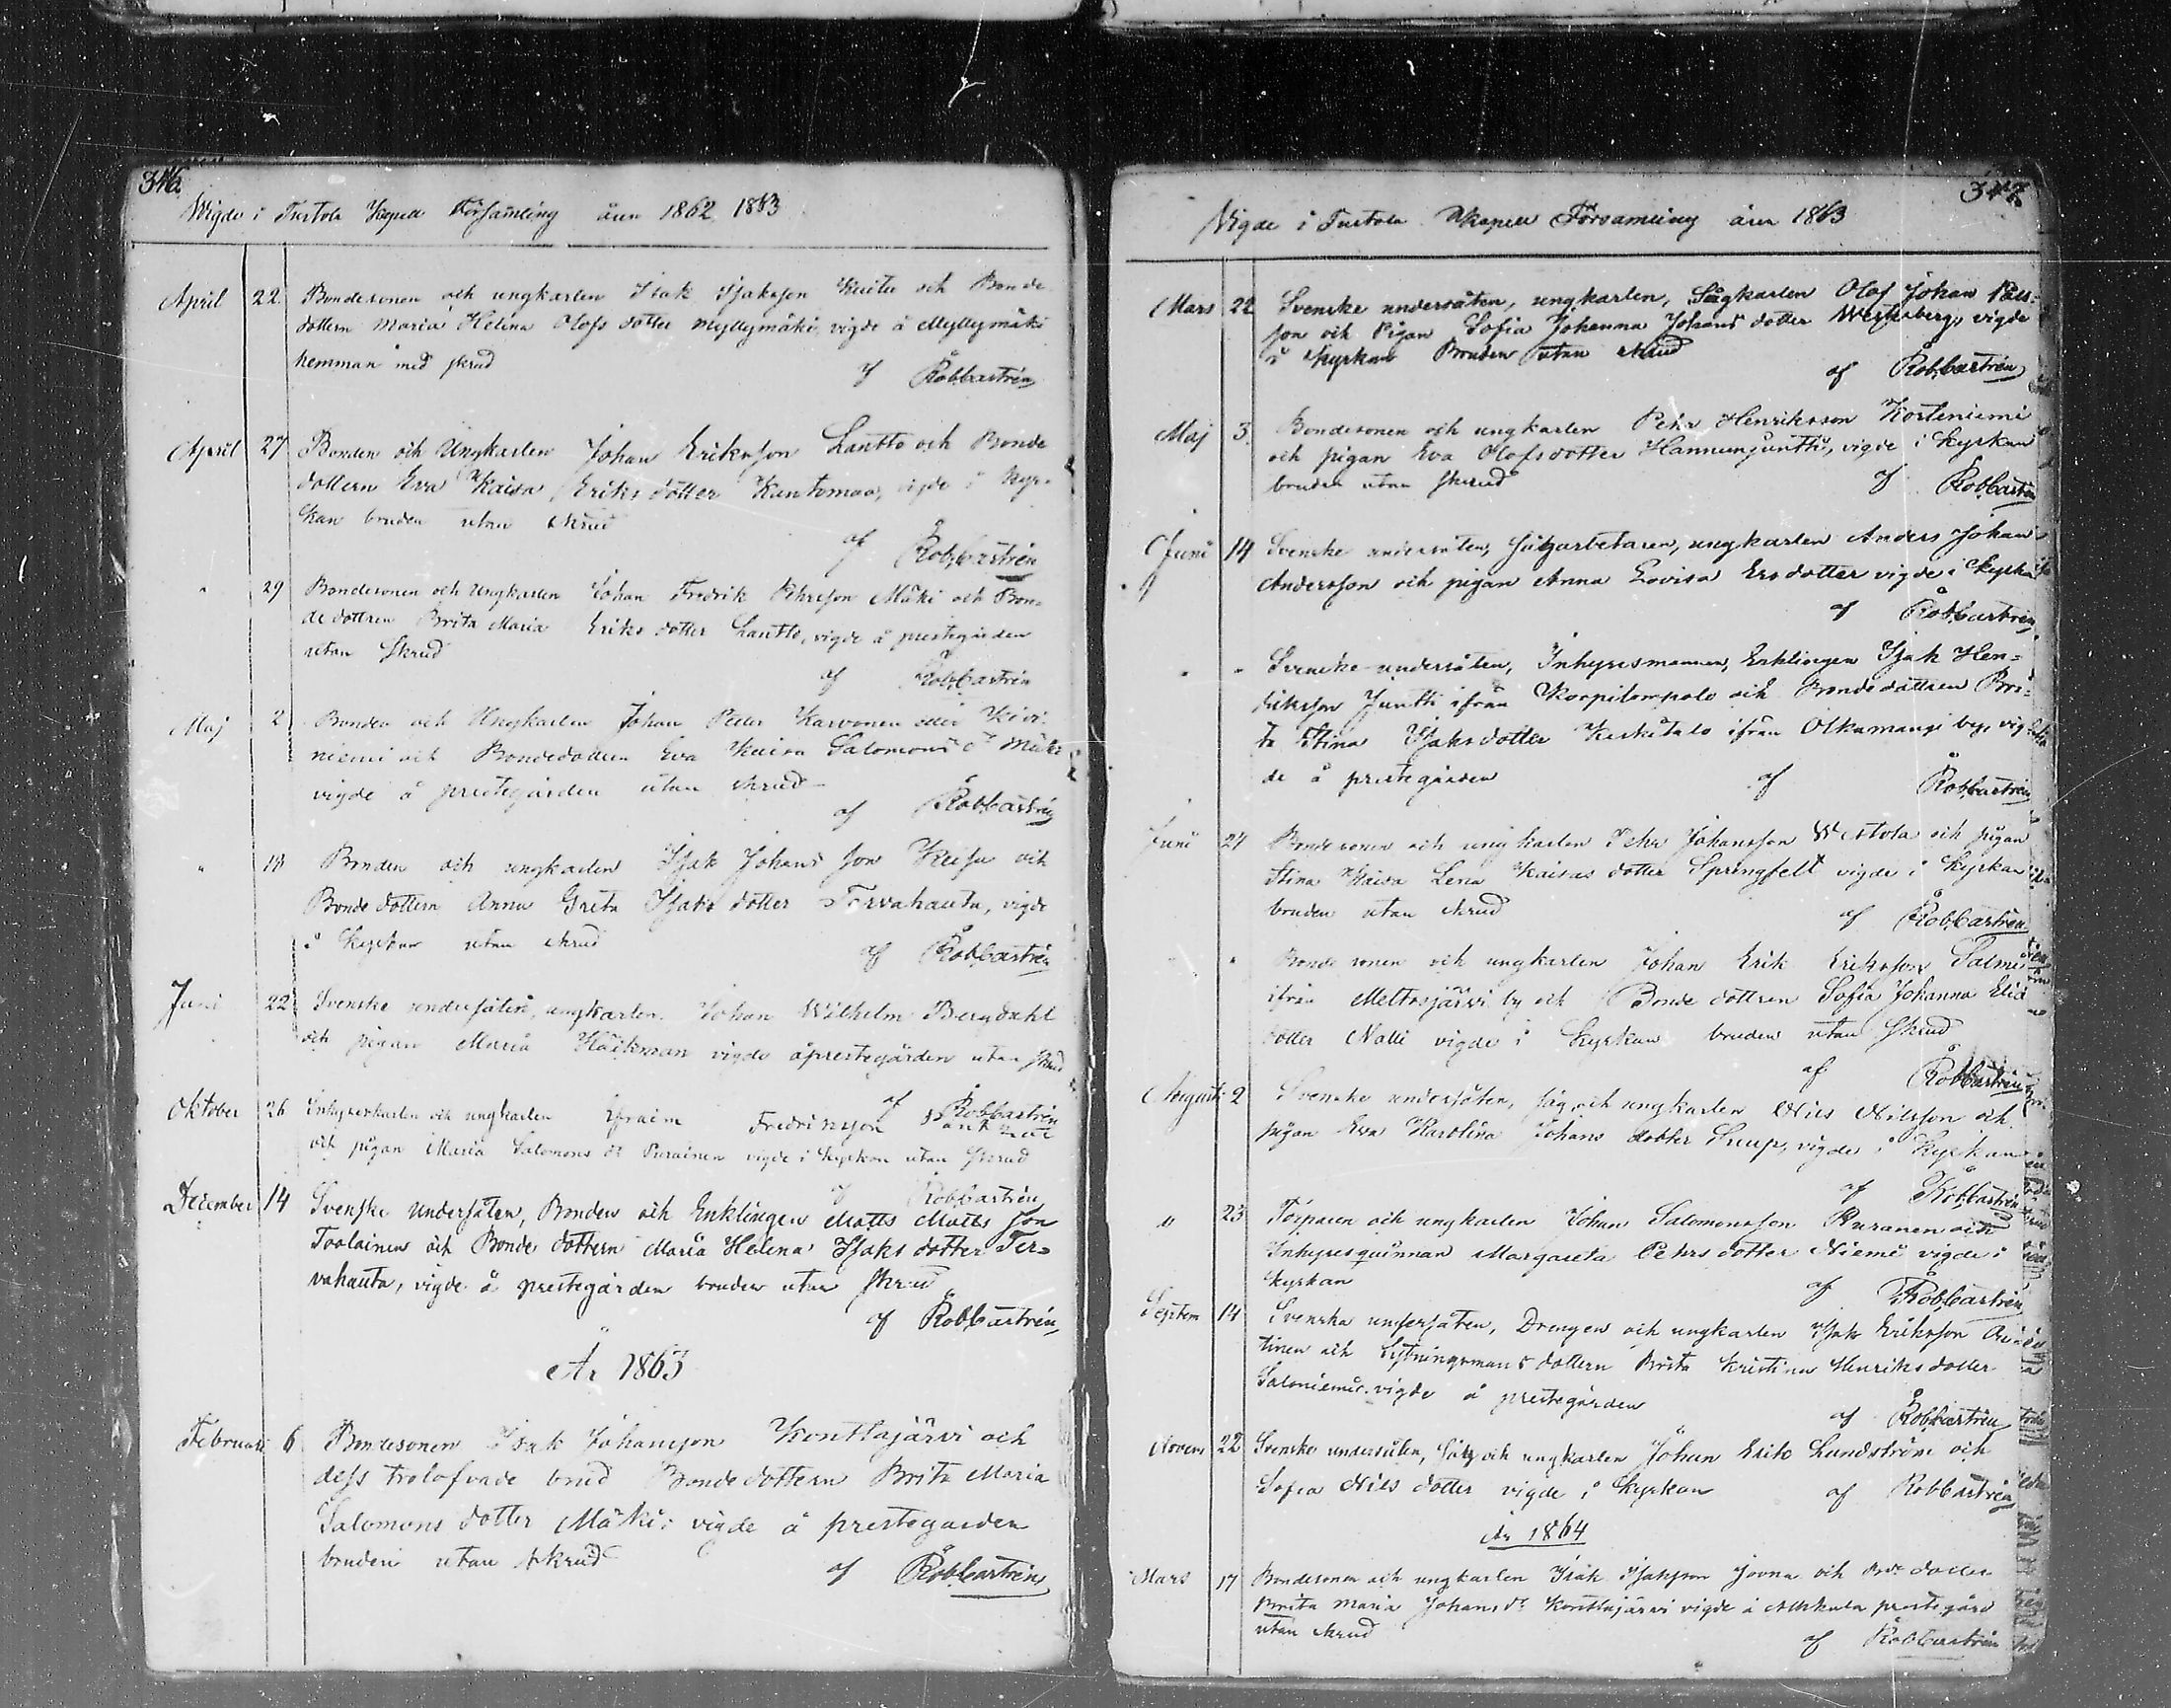 346.
Wigde i Turtola Kapell Församling åren 1862 1863
April 22 Bondesonen och ungkarlen Isak Isaksson Kuitu och Bonde
dottern Maria Helena Olofs dotter Myllymäki, vigde å Myllymäki
hemman med skrud
af RobCastrén
April 27 Bonden och Ungkarlen Johan Eriksson Lantto och Bonde
dottern Eva Kaisa Eriks dotter Kuntomaa, vigde i Kyr-
kan bruden utan skrud
af RobCastrén
" 29 Bondesonen och Ungkarlen Johan Fredrik Pehrsson Mäki och Bon-
de dottren Brita Maria Eriks dotter Lantto, vigde å prestegården
utan skrud
af RobCastrén
Maj 2 Bonden och Ungkarlen Johan Peter Karvonen eller Kivi-
niemi och Bondedottren Eva Kaisa Salomons dr Mäki
vigde å prestegården utan skrud
af RobCastrén
" 18 Bonden och ungkarlen Isak Johans son och
Bonde dottern Anna Greta Isaks dotter Tervahauta, vigde
i Kyrkan utan skrud
af RobCastrén
Juni 22 Svenske undersåten, ungkarlen Johan Wilhelm Bergdahl
och pigan Maria Häikman vigde å prestegården utan skrud
af RobCastrén
Oktober 26 Inhyseskarlen och ungkarlen Efraim Fredriksson
och pigan Maria Salomons dr Puranen vigde i kyrkan utan skrud
af RobCastrén
December 14 Svenske Undersåten, Bonden och Enklingen Matts Matts son
Toolainen och Bonde dottern Maria Helena Isaks dotter Ter-
vahauta, vigde å prestegården bruden utan skrud
af RobCastrén
År 1863
Februari 6 Bondesonen Isak Johansson Konttajärvi och
dess trolofvade brud Bonde dottern Brita Maria
Salomons dotter Mäki; vigde å prestegården
bruden utan skrud
af RobCastrén
347
Vigde i Turtola Kapell Församling åren 1863
Mars 22 Svenske undersåten, ungkarlen, Sågkarlen Olof Johan Påls-
son och Pigan Sofia Johanna Johans dotter vigde
i Kyrkan Bruden utan skrud
af RobCastrén
Maj 3. Bondesonen och ungkarlen Pehr Henriksson Korteniemi
och pigan Eva Olofsdotter Hannunjuntti, vigde i Kyrkan
bruden utan skrud
af RobCastrén
Juni 14 Svenske undersåten, sågarbetaren, ungkarlen Anders Johan
Andersson och pigan Anna Lovisa Ersdotter vigde i Kyrkan
af RobCastrén
" " Svenske undersåten, Inhysesmannen, Enklingen Isak Hen-
driksson Juntti ifrån Korpilompolo och Bondedottren Bri-
ta Stina Isaksdotter Keskitalo ifrån Olkamangi by, vig-
de å prestegården af RobCastrén
Juni 24 Bondesonen och ungkarlen Pehr Johansson Wistola och pigan
Stina Kaisa Lena Kaisas dotter Springfelt vigde i Kyrkan
bruden utan skrud
af RobCastrén
" " Bondesonen och ungkarlen Johan Erik Eriksson Palmi
ifrån Meltosjärvi by och Bonde dottren Sofia Johanna Elia
dotter Nalli vigde i Kyrkan bruden utan skrud
af RobCastrén
Augusti 2 Svenske undersåten, såg och ungkarlen Nils Nilsson och
pigan Eva Karolina Johans dotter Snup, vigde i Kyrkan
af RobCastrén
" 23 Torparen och ungkarlen Johan Salomonsson Puranen och
Inhysesquinnan Margareta Pehrs dotter Niemi vigde i
Kyrkan
af RobCastrén
Septem 14 Svenska undersåten, Drengen och ungkarlen Isak Eriksson
och dottern Brita Kristina Henriksdotter
Saloniemi vigde å prestegården
af RobCastrén
Novem 22 Svenske undersåten, såg och ungkarlen Johan Erik Lundström och
Sofia Nils dotter vigde i kyrkan af RobCastrén
År 1864
Mars 17 Bondesonen och ungkarlen Isak Isaksson Jovna och dotter
Brita Maria Johans dr Konttajärvi vigde å Alkkula prestegård
utan skrud
af RobCastrén